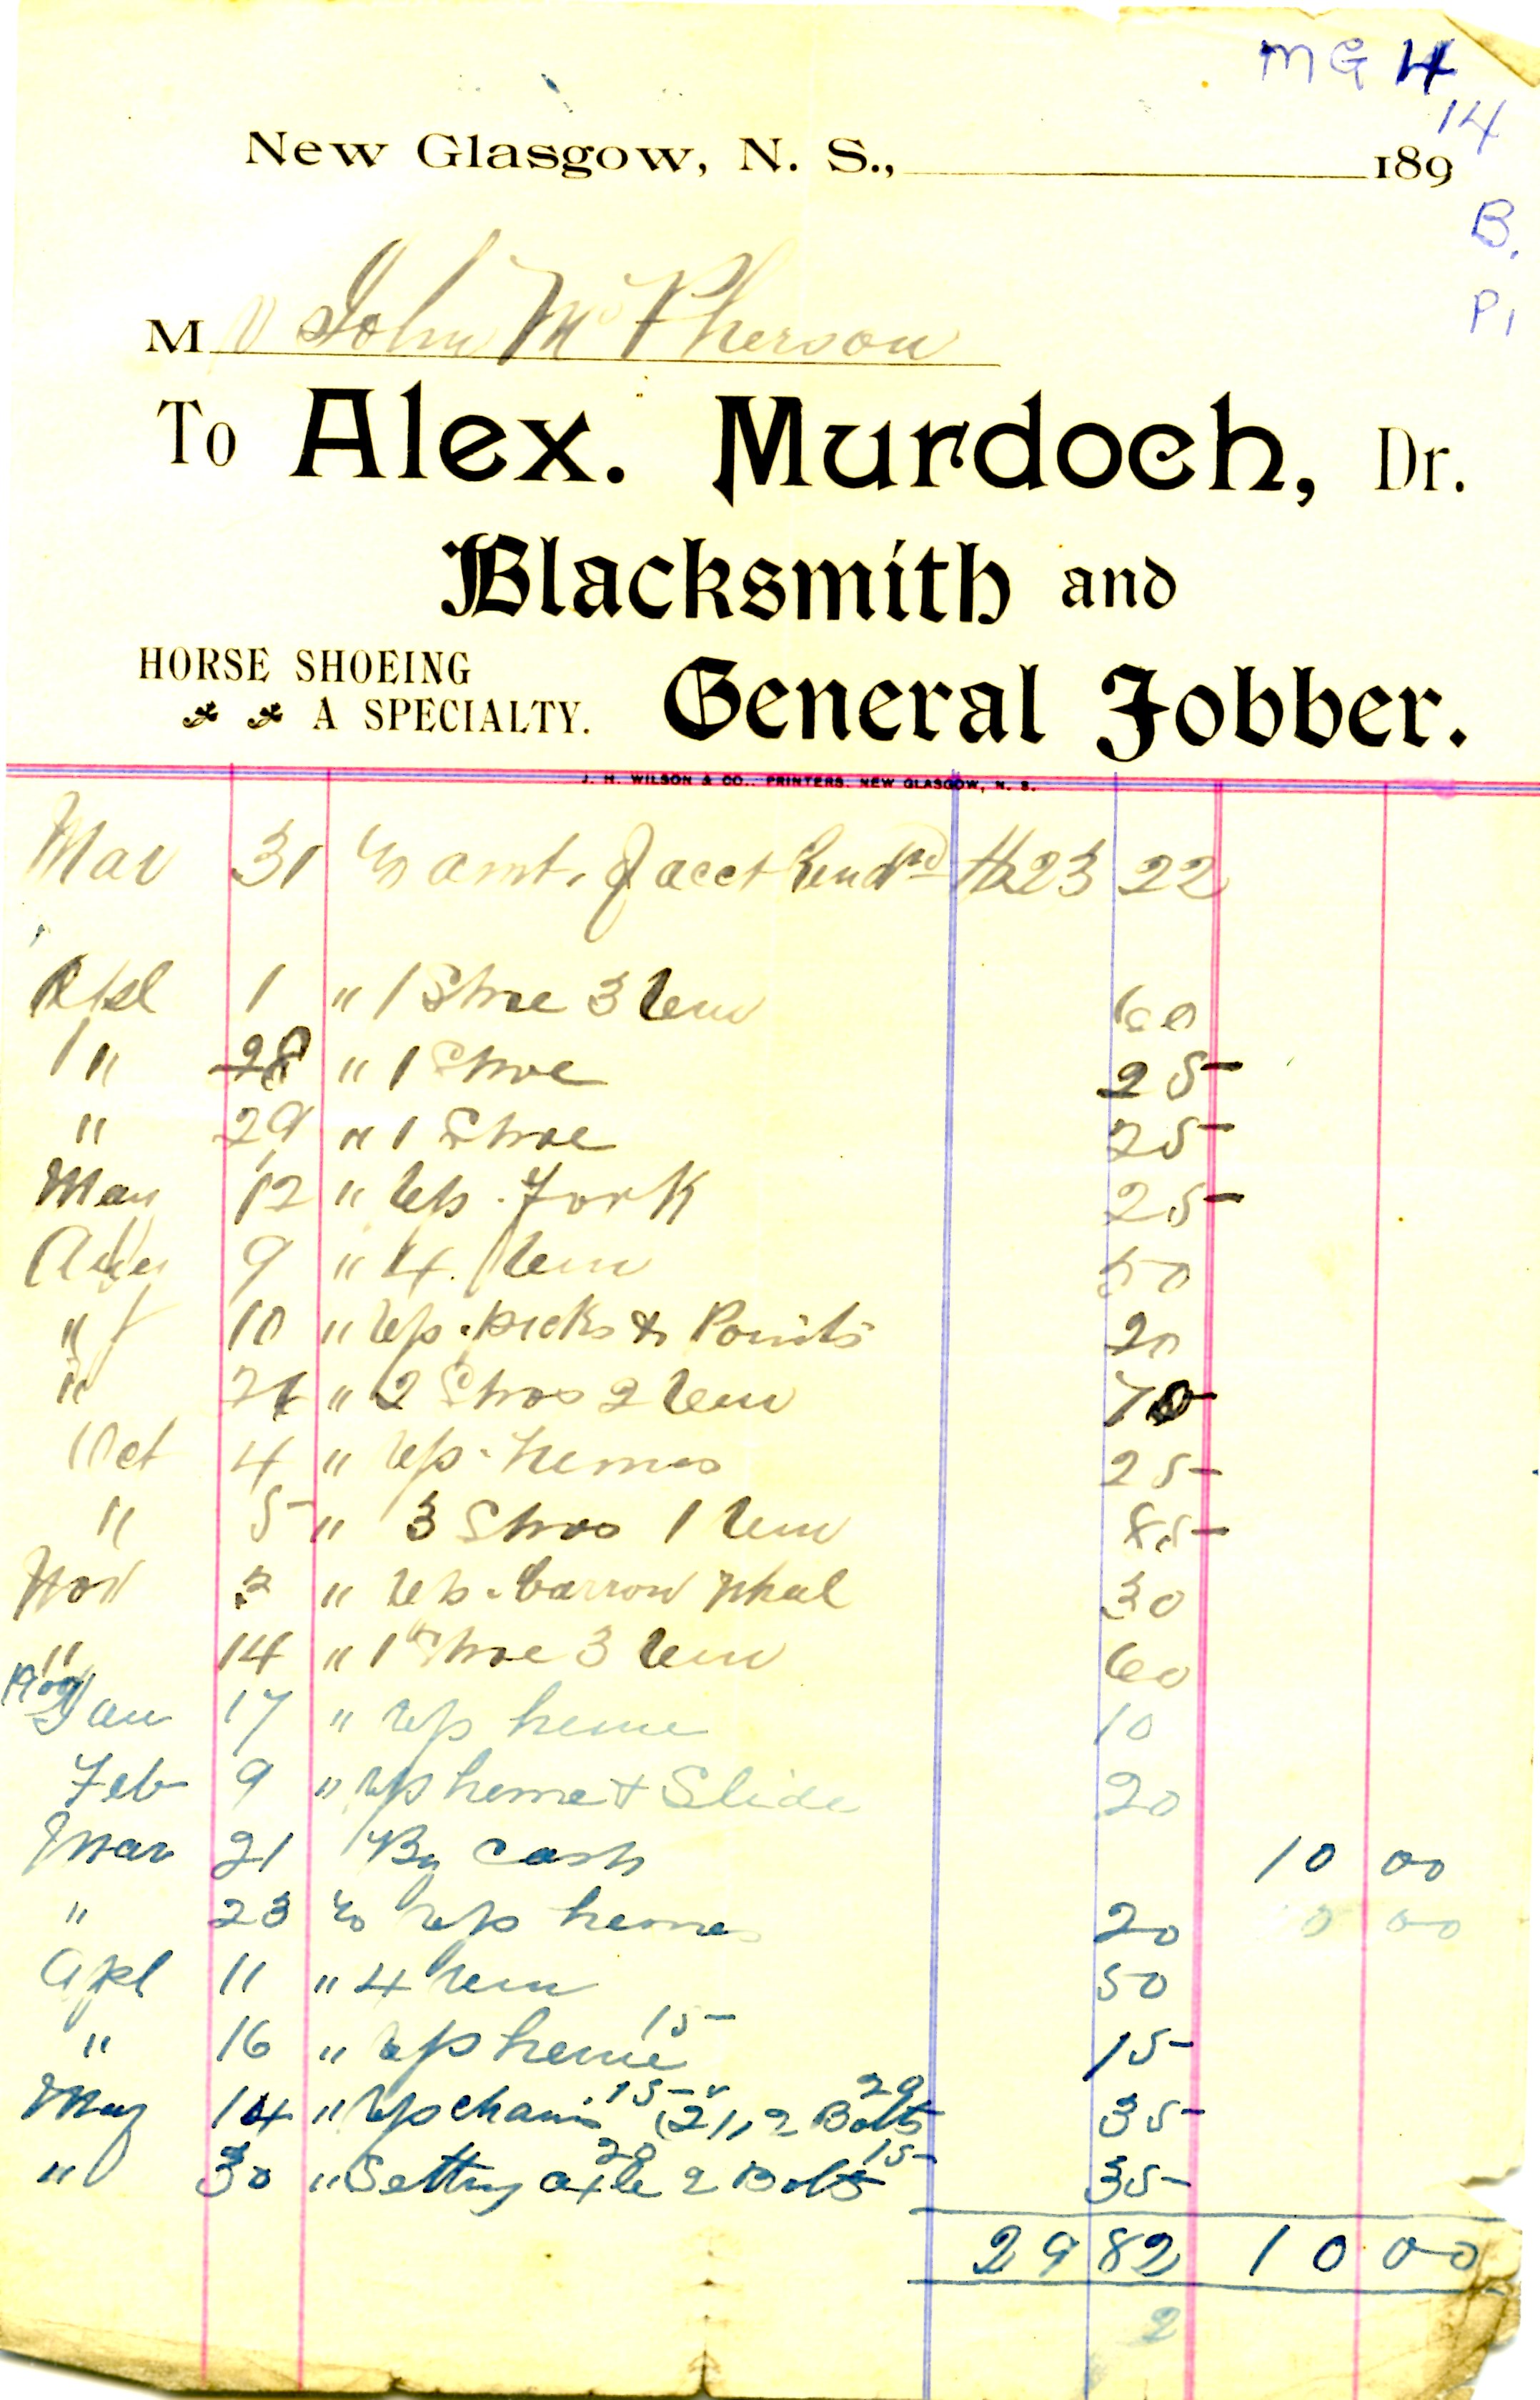 MG 4
14
New Glasgow, N. S., 189
B.
P1
M John McPherson
To Alex. Murdoch, Dr.
Blacksmith and
HORSE SHOEING
A SPECIALTY.
General Jobber.
J. H. WILSON & CO., PRINTERS. NEW GLASGOW, N. S.
Mar 31 To amt. of acct Rendrd $23 22
Apl 1 " 1 Shoe 3 Rem 60
" 28 " 1 Shoe 25
" 29 " 1 Shoe 25
May 12 " Rep. Fork 25
Aug 9 " 4 Rem 50
" 10 " Rep. picks & Points 20
" " 2 Shos 2 Rem 70
Oct 4 " Rep. hemes 25
" 5 " 3 Shos 1 Rem 85
Nov 2 " Rep. barrow Wheel 30
" 14 " 1 Shoe 3 Rem 60
1900
Jan 17 " Rep heme 10
Feb 9 " Rep heme & Slide 20
Mar 21 By Cash 10 00
" 23 To Rep hemes 20
Apl 11 " 4 Rem 50
" 16 " Rep heme 15 15
May 14 " Rep chain 15 2 Bolts 20 35
" 30 " Setting axle 20 2 Bolts 15 35
29 82 10 00
2